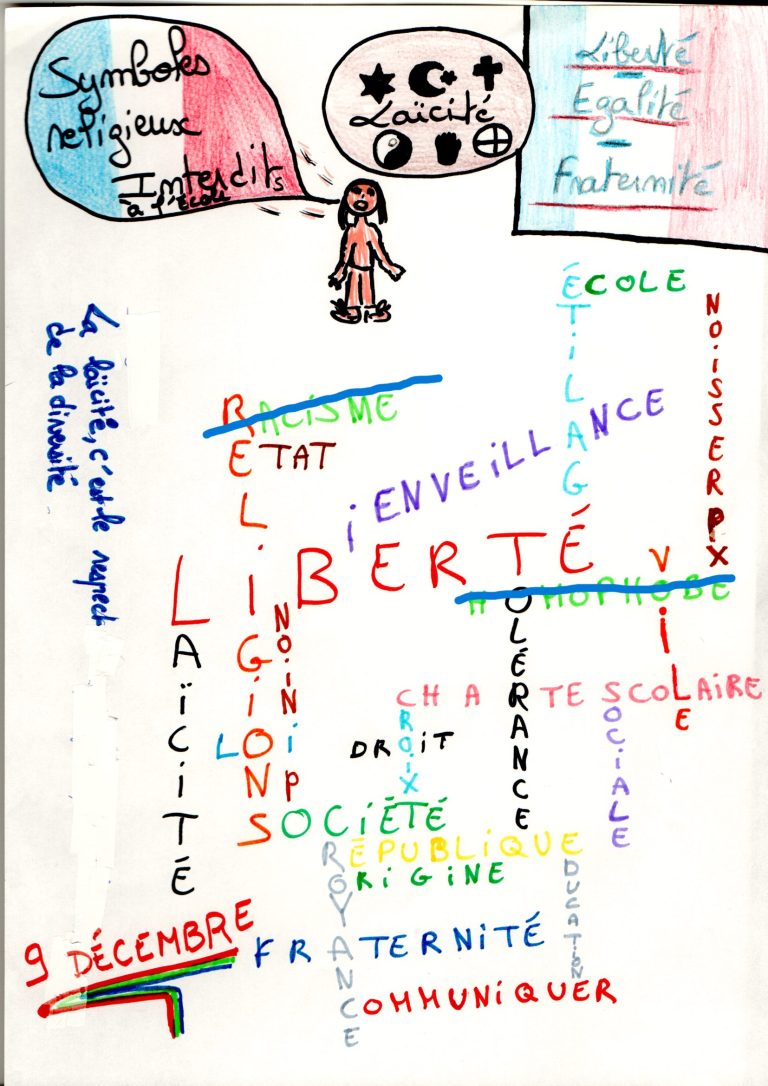 Symboles
religieux
Interdits
à l'École
Laïcité
Liberté
Egalité
Fraternité
La laïcité, c'est le respect
de la diversité
ÉCOLE
ÉGALiTÉ
EXPRESSiON
RACiSME
RELiGiONS
ETAT
BiENVEiLLANCE
LiBERTÉ
LAÏCiTÉ
HOMOPHOBE
TOLÉRANCE
ViLE
OPiNiON
CHARTE SCOLAiRE
CROiX
SOCiALE
LOi
DROiT
SOCiÉTÉ
RÉPUBLiQUE
CROYANCE
ORiGiNE
EDUCATION
9 DÉCEMBRE
FRATERNiTÉ
COMMUNiQUER